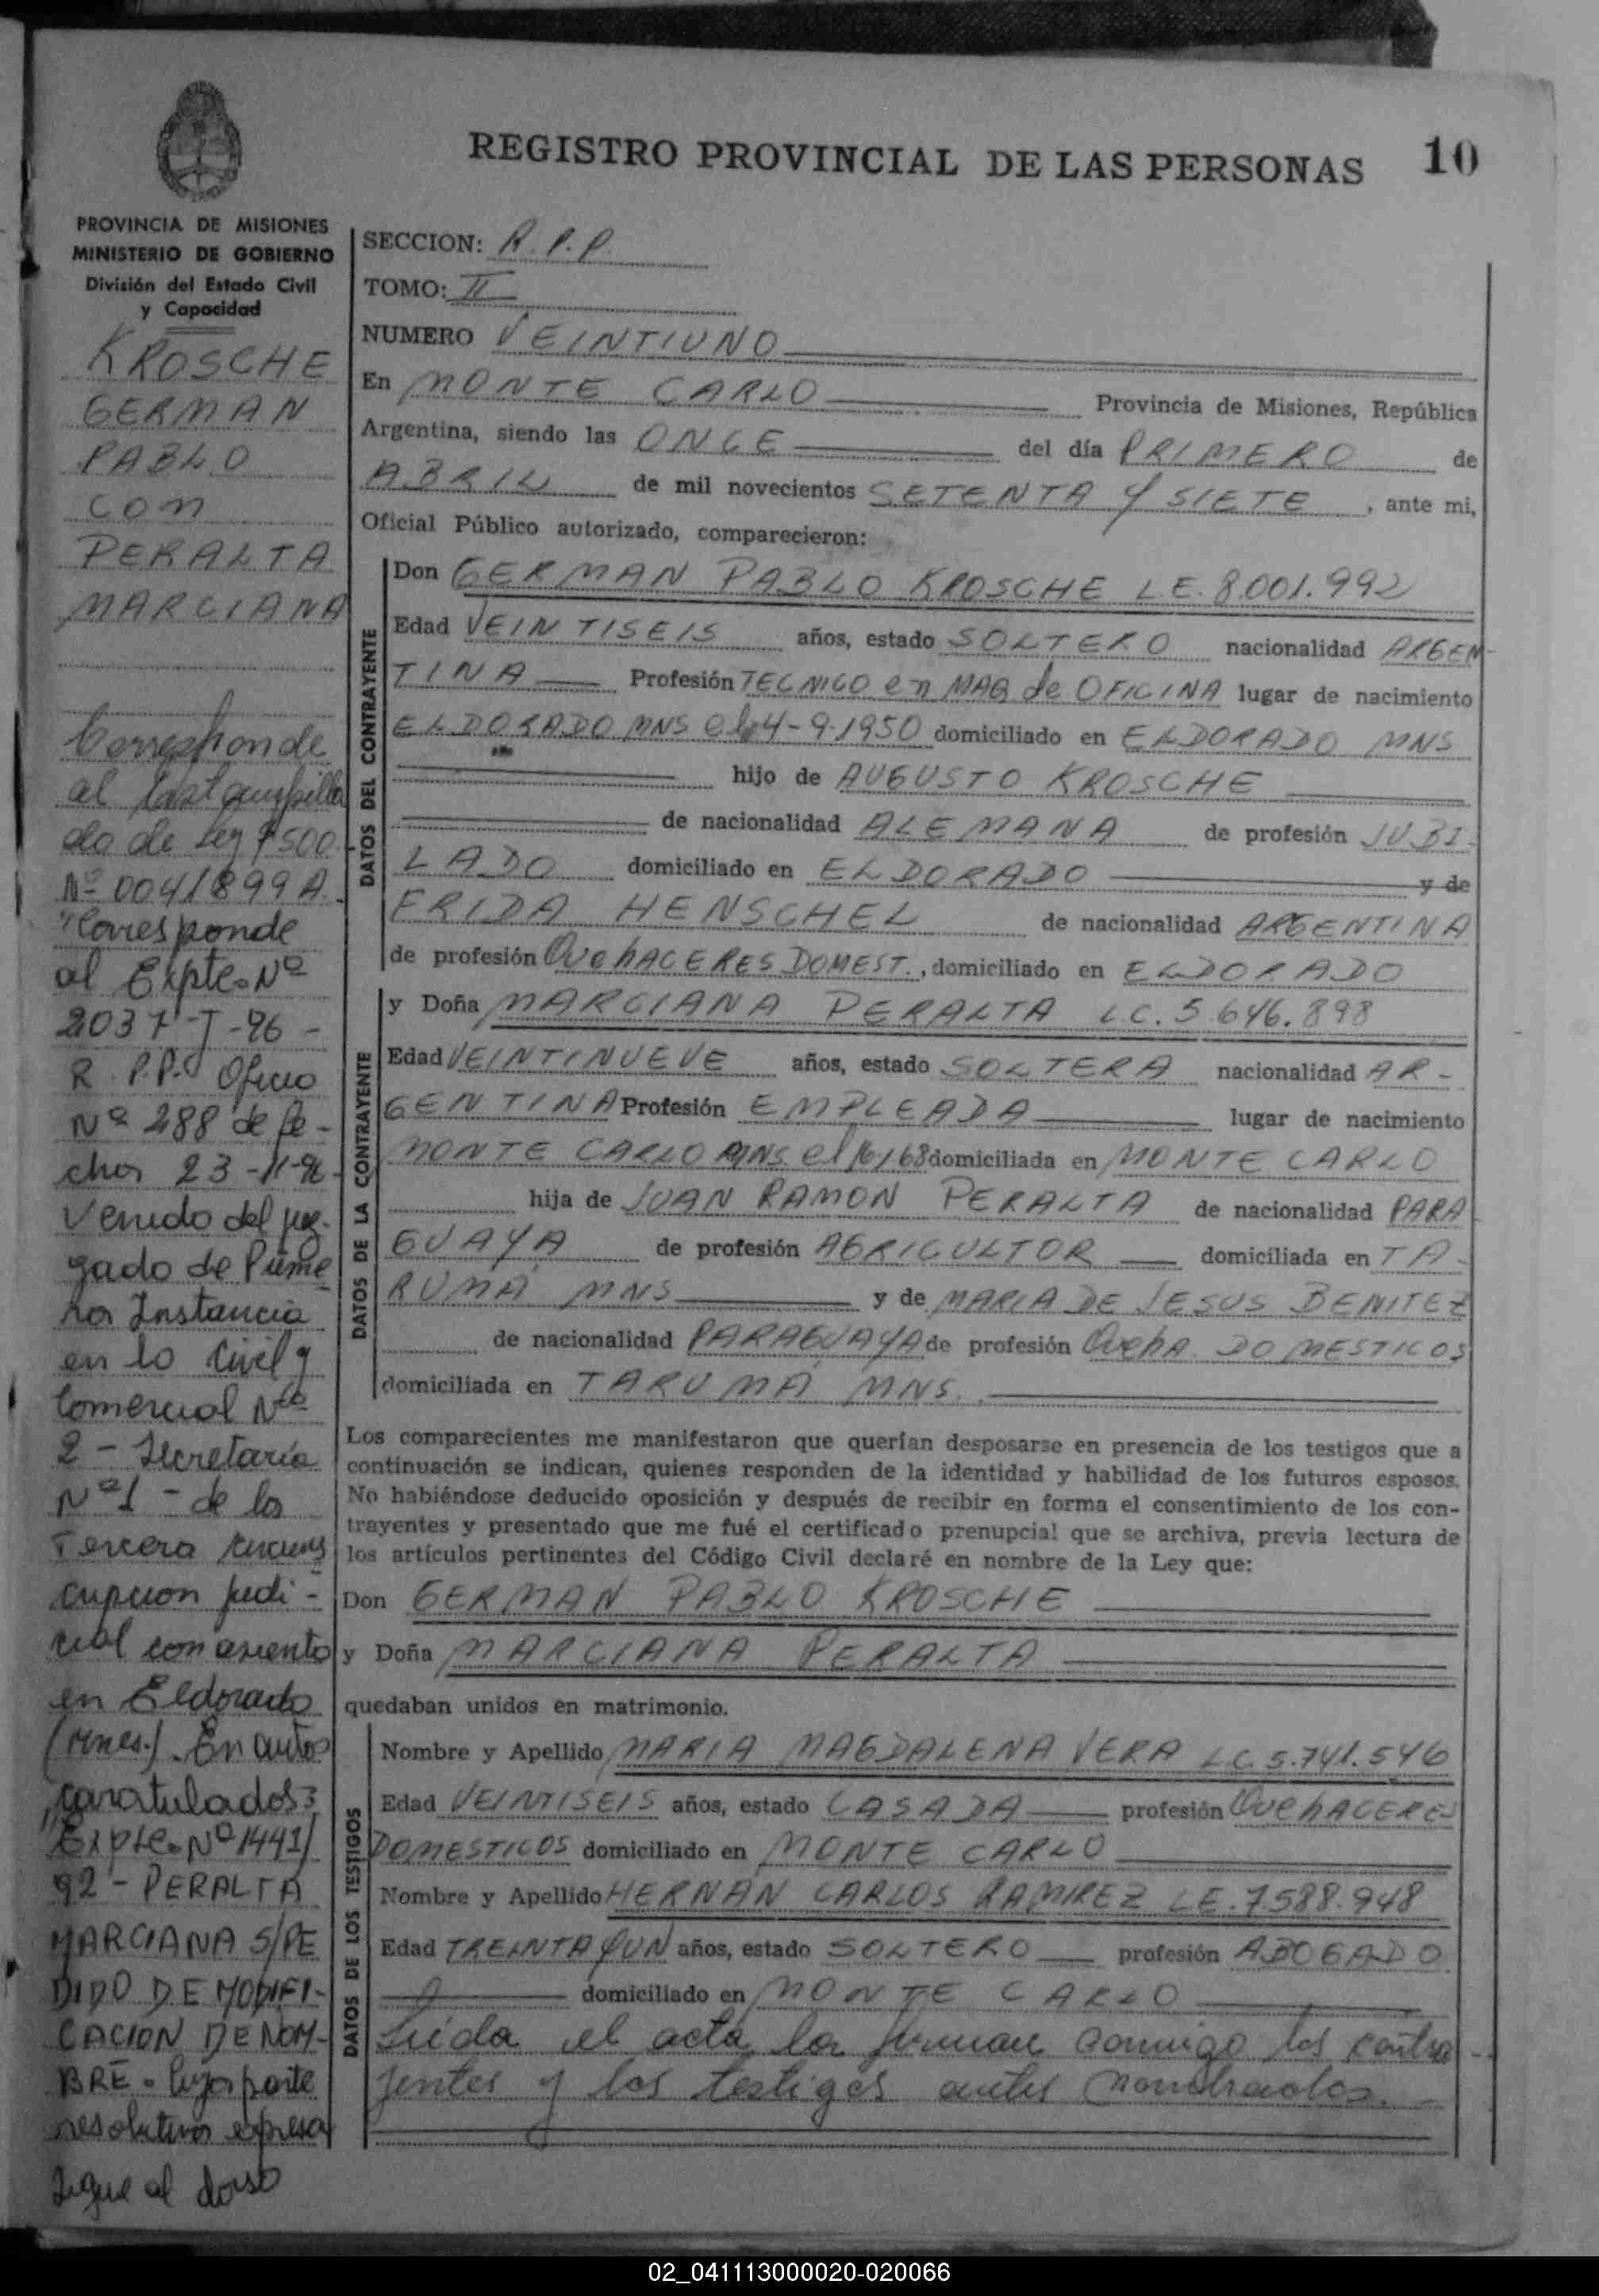 REGISTRO PROVINCIAL DE LAS PERSONAS 10
PROVINCIA DE MISIONES
MINISTERIO DE GOBIERNO
División del Estado Civil
y Capacidad
KROSCHE
GERMAN
PABLO
CON
PERALTA
MARCIANA
Corresponde
al
do de Ley $ 500
Nº 0041899 A.
"Corresponde
al Expte. Nº
2037-T-96-
R.P.P. Oficio
Nº 288 de fe-
cha 23-11-96
Venido del juz-
gado de Prime
ra Instancia
en lo Civil y
Comercial Nro
2 - Secretaría
Nº 1 - de la
Tercera circuns
cripción judi-
cial con asiento
en Eldorado
(Mnes.). En autos
caratulados:
"Expte. Nº 1441/
92 - PERALTA
MARCIANA S/PE
DIDO DE MODIFI-
CACION DE NOM-
BRE - cuya parte
resolutiva expresa
Sigue al dorso
SECCION: R.P.P.
TOMO: II
NUMERO VEINTIUNO
En MONTE CARLO Provincia de Misiones, República
Argentina, siendo las ONCE del día PRIMERO de
ABRIL de mil novecientos SETENTA Y SIETE, ante mi,
Oficial Público autorizado, comparecieron:
DATOS DEL CONTRAYENTE
Don GERMAN PABLO KROSCHE L.E. 8.001.992
Edad VEINTISEIS años, estado SOLTERO nacionalidad ARGEN-
TINA Profesión TECNICO en MAQ de OFICINA lugar de nacimiento
ELDORADO MNS el 4-9-1950 domiciliado en ELDORADO MNS
hijo de AUGUSTO KROSCHE
de nacionalidad ALEMANA de profesión JUBI-
LADO domiciliado en ELDORADO y de
ERIDA HENSCHEL de nacionalidad ARGENTINA
de profesión QueHACERES DOMEST., domiciliado en ELDORADO
DATOS DE LA CONTRAYENTE
y Doña MARCIANA PERALTA L.C. 5.646.898
Edad VEINTINUEVE años, estado SOLTERA nacionalidad AR-
GENTINA Profesión EMPLEADA lugar de nacimiento
MONTE CARLO MNS. el domiciliada en MONTE CARLO
hija de JUAN RAMON PERALTA de nacionalidad PARA
GUAYA de profesión AGRICULTOR domiciliada en TA-
RUMA MNS y de MARIA DE JESUS BENITEZ
de nacionalidad PARAGUAYA de profesión QueHA. DOMESTICOS
domiciliada en TARUMA MNS.
Los comparecientes me manifestaron que querían desposarse en presencia de los testigos que a
continuación se indican, quienes responden de la identidad y habilidad de los futuros esposos.
No habiéndose deducido oposición y después de recibir en forma el consentimiento de los con-
trayentes y presentado que me fué el certificado prenupcial que se archiva, previa lectura de
los artículos pertinentes del Código Civil declaré en nombre de la Ley que:
Don GERMAN PABLO KROSCHE
y Doña MARCIANA PERALTA
quedaban unidos en matrimonio.
DATOS DE LOS TESTIGOS
Nombre y Apellido MARIA MAGDALENA VERA L.C. 5.741.546
Edad VEINTISEIS años, estado CASADA profesión QUEHACERES
DOMESTICOS domiciliado en MONTE CARLO
Nombre y Apellido HERNAN CARLOS RAMIREZ L.E. 7.588.948
Edad TREINTA Y UN años, estado SOLTERO profesión ABOGADO
domiciliado en MONTE CARLO
Leida el acta la firman conmigo los contra
yentes y los testigos antes nombrados.
02_041113000020-020066